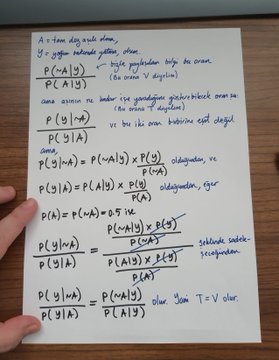 A = tam doz aşılı olma,
Y = yoğun bakımda yatma, olsun.
P(~A|Y) / P(A|Y) ← bizle paylaşılan bilgi bu oran
(Bu orana V diyelim)
ama aşının ne kadar işe yaradığını gösterebilecek oran şu:
(Bu orana T diyelim)
P(Y|~A) / P(Y|A) ve bu iki oran birbirine eşit değil
ama,
P(Y|~A) = P(~A|Y) × P(Y) / P(~A) olduğundan, ve
P(Y|A) = P(A|Y) × P(Y) / P(A) olduğundan, eğer
P(A) = P(~A) = 0.5 ise
P(Y|~A) / P(Y|A) = (P(~A|Y) × P(Y) / P(~A)) / (P(A|Y) × P(Y) / P(A)) şeklinde sadeleşeceğinden
P(Y|~A) / P(Y|A) = P(~A|Y) / P(A|Y) olur. Yani T = V olur.